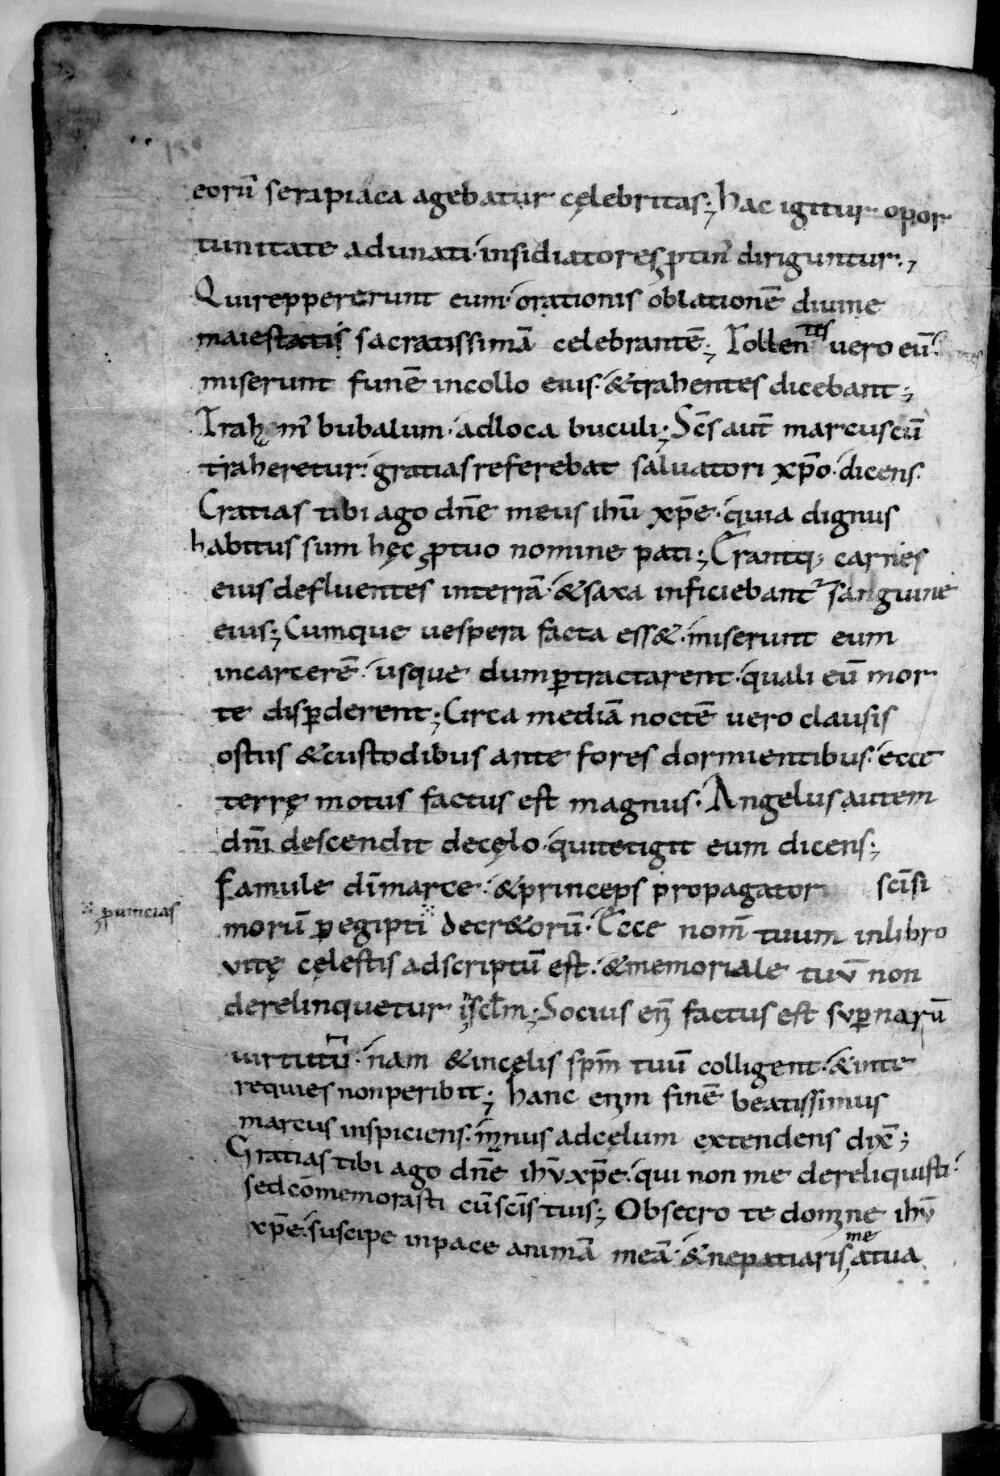 eorū serapiaca agebatur cęlebritas; hac igitur opor
tunitate adunati· insidiatores ptin̄ diriguntur·,
Quireppererunt eum· orationis oblationē diuine
maiestatis sacratissimā celebrantē; Tollentes uero eū·
miserunt funē incollo eius· &trahentes dicebant;
Trahem̄ bubalum· adloca buculi; Sc̄s aut̄ marcus cū
traheretur· gratias referebat saluatori xp̄o· dicens·
Gratias tibi ago dn̄e meus ihū xp̄e· quia dignus
habitus sum hęc ꝓtuo nomine pati; Erantq; carnes
eius defluentes interrā· &saxa inficiebant᷒ sanguine
eius; Cumque uespera facta ess&· miserunt eum
incarcerē· usque dumꝑtractarent· quali eū mor
te disꝑderent; Circa mediā noctē uero clausis
ostiis &custodibus ante fores dormientibus· ecce
terrę motus factus est magnus· Angelus autem
dn̄i descendit decęlo· quitetigit eum dicens;
Famule dī marce· &princeps propagator sc̄isi
ꝓuincias
morū ꝑegipti decr&orū· Ecce nom̄ tuum inlibro
vitę cęlestis adscriptū est· &memoriale tuū non
derelinquetur
Socius en̄ factus est suꝑnarū
uirtutū· nam &incęlis sp̄m tuū colligent· &inte
requies nonperibit; hanc enim finē beatissimus
marcus inspiciens· manus adcęlum extendens dix̄;
Gratias tibi ago dn̄e ihū xp̄e· qui non me dereliquisti·
sedcōmemorasti cū sc̄is tuis; Obsecro te domine ihū
xp̄e· suscipe inpace animā meā· &nepatiaris me atua